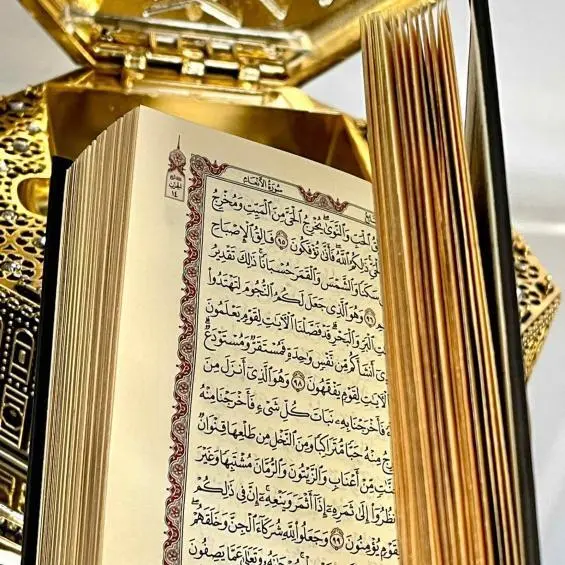 سُورَةُ الأَنْعَامِ
الحزب
١٤
ٱلْحَبِّ وَٱلنَّوَىٰۖ يُخْرِجُ ٱلْحَيَّ مِنَ ٱلْمَيِّتِ وَمُخْرِجُ
ذَٰلِكُمُ ٱللَّهُۖ فَأَنَّىٰ تُؤْفَكُونَ ٩٥ فَالِقُ ٱلْإِصْبَاحِ
سَكَنًا وَٱلشَّمْسَ وَٱلْقَمَرَ حُسْبَانًاۚ ذَٰلِكَ تَقْدِيرُ
٩٦ وَهُوَ ٱلَّذِى جَعَلَ لَكُمُ ٱلنُّجُومَ لِتَهْتَدُوا۟
ٱلْبَرِّ وَٱلْبَحْرِۗ قَدْ فَصَّلْنَا ٱلْـَٔايَـٰتِ لِقَوْمٍ يَعْلَمُونَ
أَنشَأَكُم مِّن نَّفْسٍ وَٰحِدَةٍ فَمُسْتَقَرٌّ وَمُسْتَوْدَعٌۗ
ٱلْـَٔايَـٰتِ لِقَوْمٍ يَفْقَهُونَ ٩٨ وَهُوَ ٱلَّذِىٓ أَنزَلَ مِنَ
فَأَخْرَجْنَا بِهِۦ نَبَاتَ كُلِّ شَىْءٍ فَأَخْرَجْنَا مِنْهُ
مِنْهُ حَبًّا مُّتَرَاكِبًا وَمِنَ ٱلنَّخْلِ مِن طَلْعِهَا قِنْوَانٌ
مِّنْ أَعْنَابٍ وَٱلزَّيْتُونَ وَٱلرُّمَّانَ مُشْتَبِهًا وَغَيْرَ
ٱنظُرُوٓا۟ إِلَىٰ ثَمَرِهِۦٓ إِذَآ أَثْمَرَ وَيَنْعِهِۦٓۚ إِنَّ فِى ذَٰلِكُمْ
لِّقَوْمٍ يُؤْمِنُونَ ٩٩ وَجَعَلُوا۟ لِلَّهِ شُرَكَآءَ ٱلْجِنَّ وَخَلَقَهُمْۖ
وَتَعَـٰلَىٰ عَمَّا يَصِفُونَ